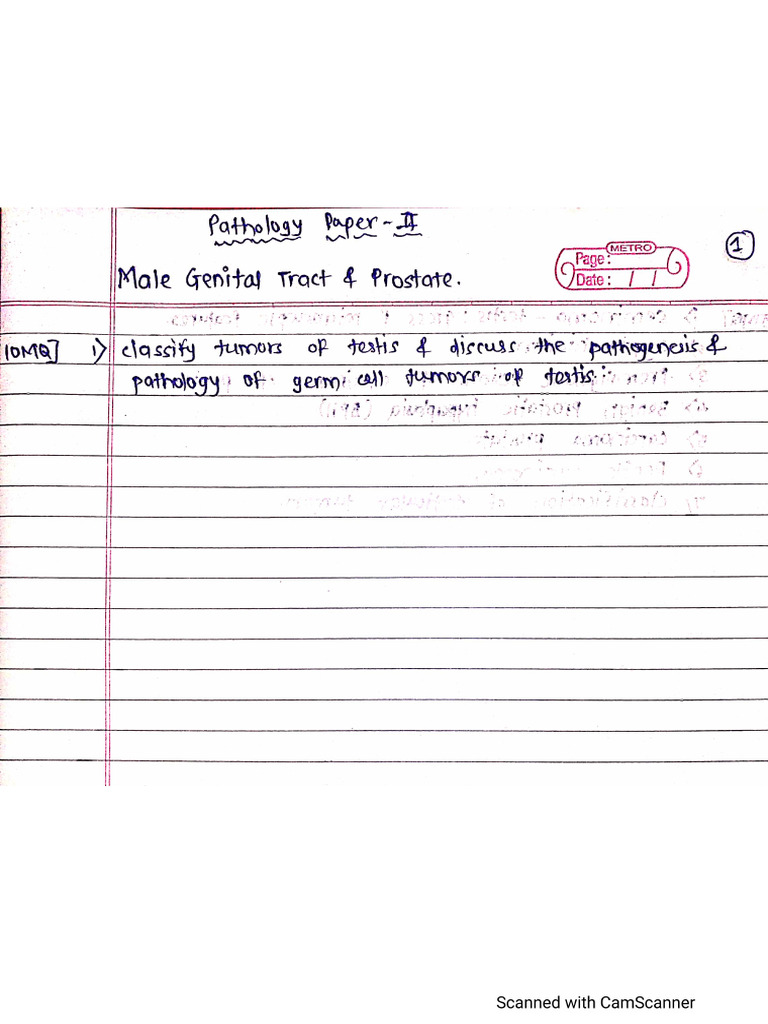 Pathology Paper-II
1
METRO
Page:
Date: / /
Male Genital Tract & Prostate.
10MQ] 1) classify tumors of testis & discuss the pathogenesis &
pathology of germ cell tumors of testis.
Scanned with CamScanner